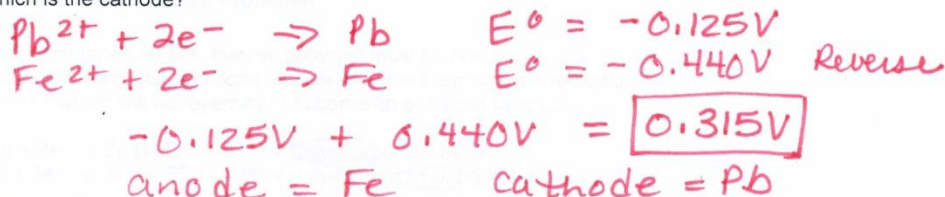 which is the cathode?
Pb²⁺ + 2e⁻ → Pb E° = -0.125V
Fe²⁺ + 2e⁻ → Fe E° = -0.440V Reverse
-0.125V + 0.440V = 0.315V
anode = Fe cathode = Pb